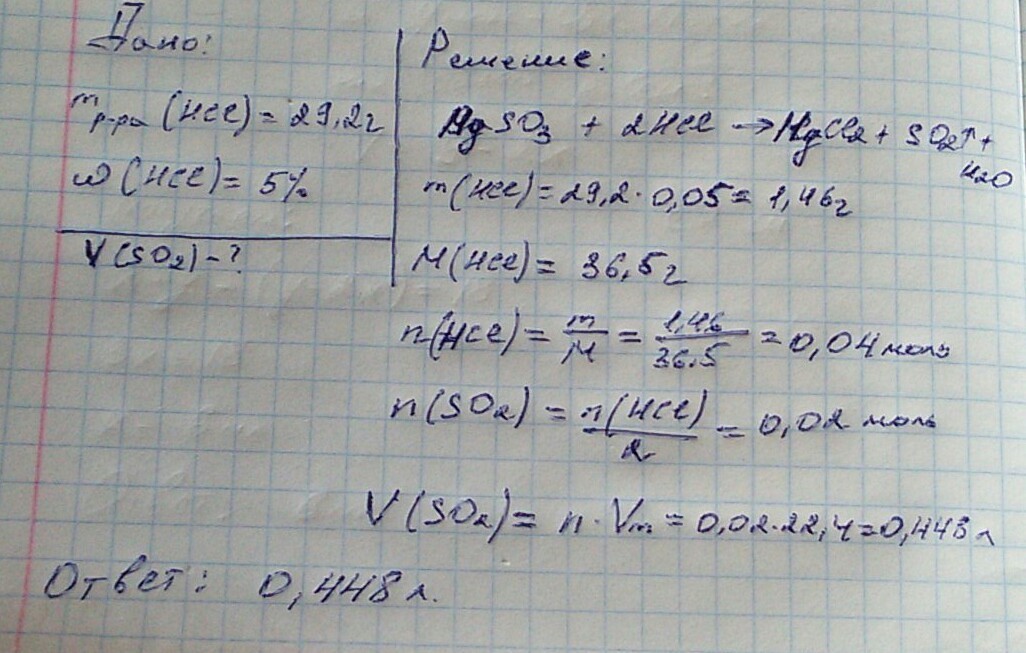 Дано:
m р-ра (HCl) = 29,2г
ω (HCl) = 5%
V (SO2) - ?
Решение:
MgSO3 + 2HCl → MgCl2 + SO2↑ +
H2O
m(HCl) = 29,2 · 0,05 = 1,46г
M(HCl) = 36,5г
n(HCl) = m/M = 1,46/36,5 = 0,04 моль
n(SO2) = n(HCl)/2 = 0,02 моль
V(SO2) = n · Vm = 0,02·22,4=0,448 л
Ответ: 0,448 л.